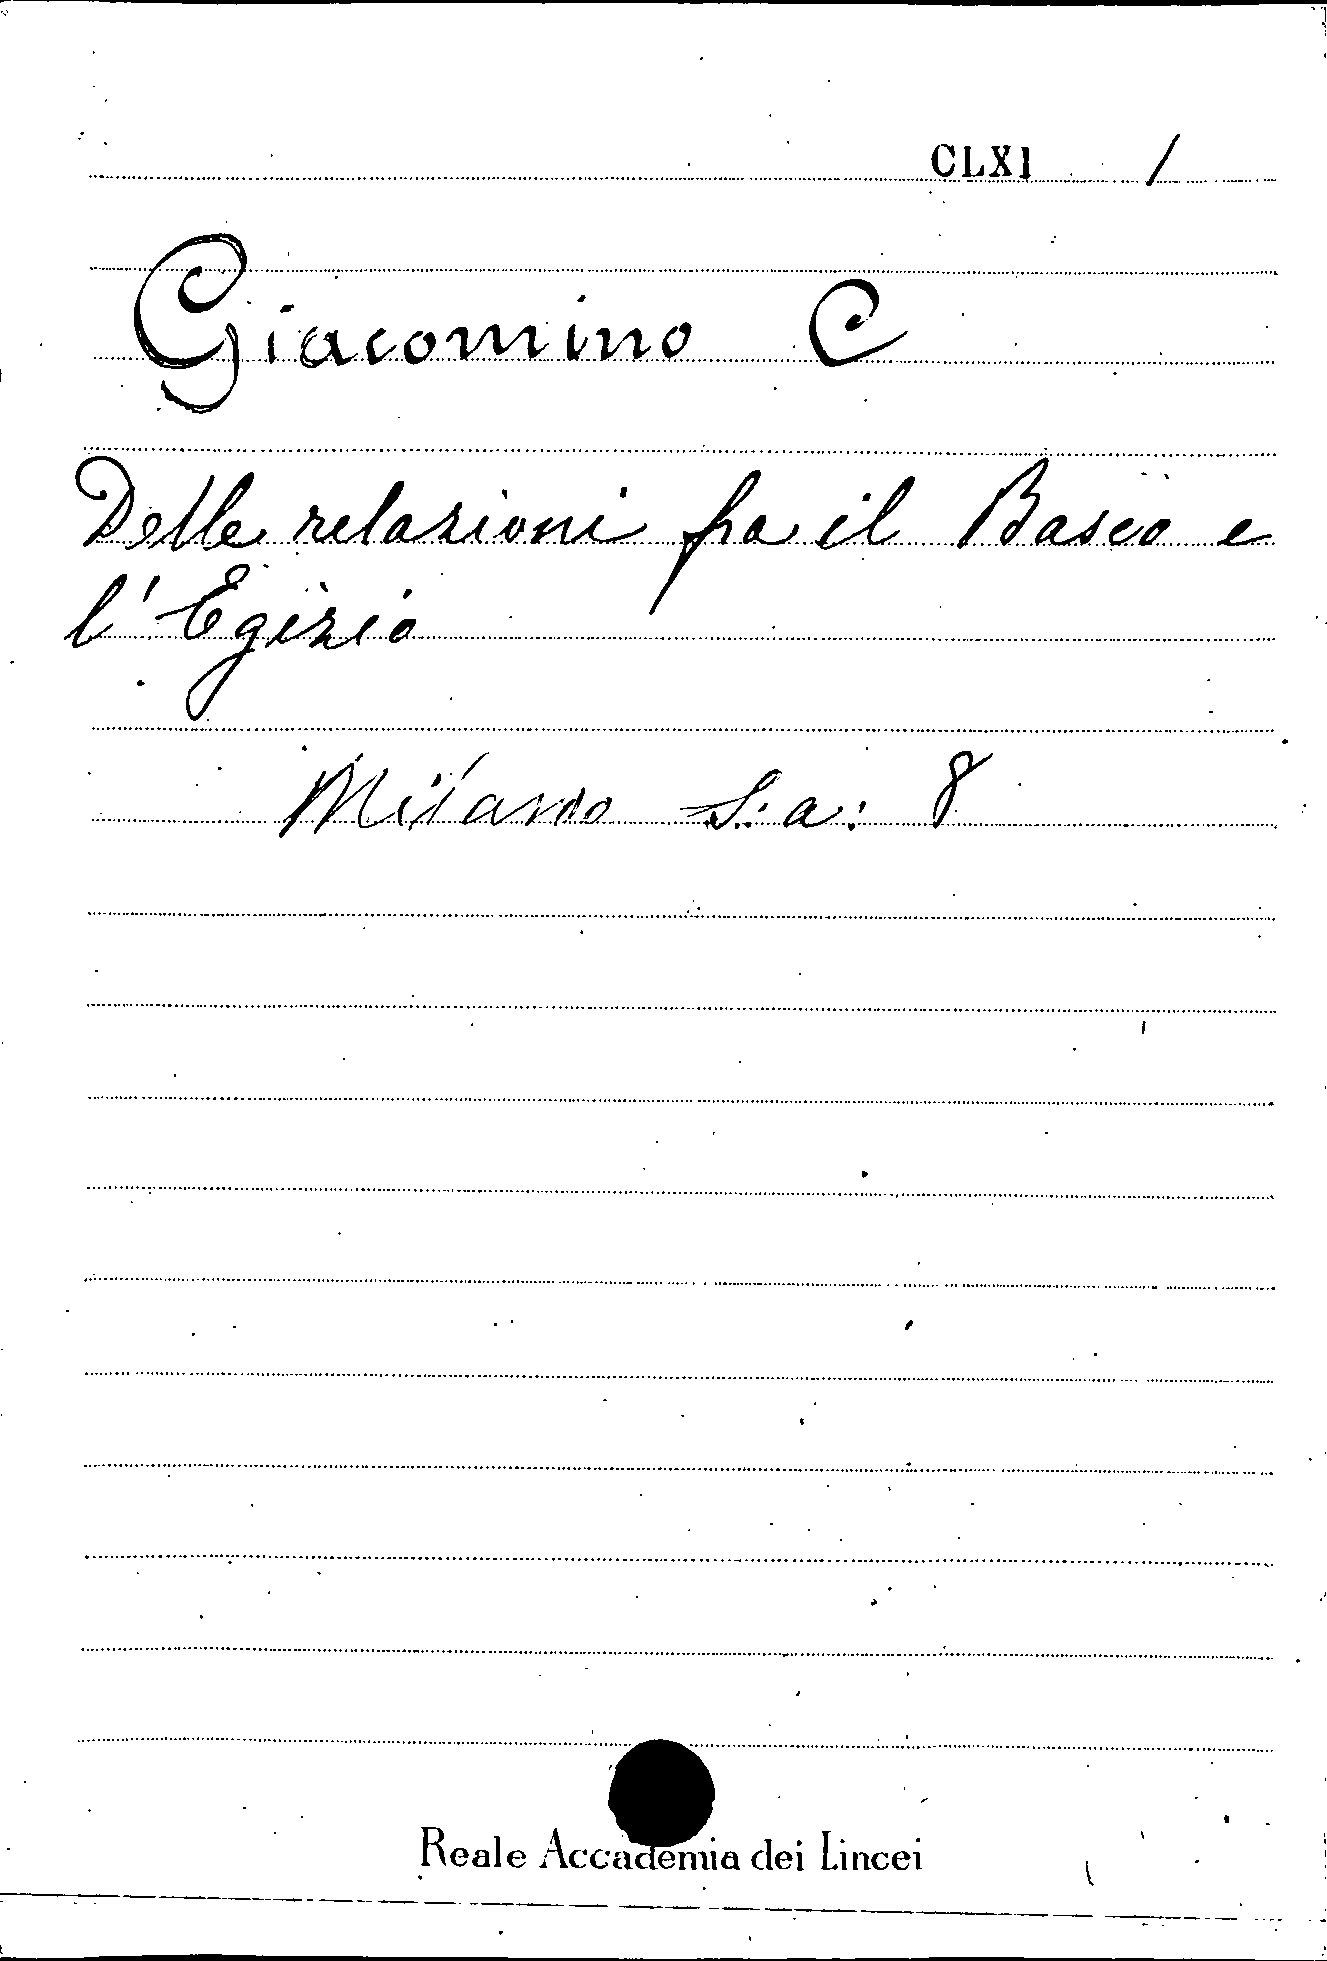 CLXI /
Giacomino C
Delle relazioni fra il Basco e
l'Egizio
Milano s. a. 8
Reale Accademia dei Lincei